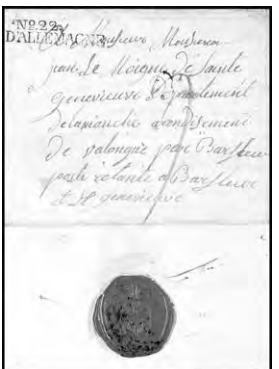 Nº.22.
D'ALLEMAGNE
Monsieur Monsieur
jean Le Moigne De Sainte
genevieuve Departement
Delamanche arondisement
De valongne par Barfleur
poste restante a Barfleur
et St genevieuve